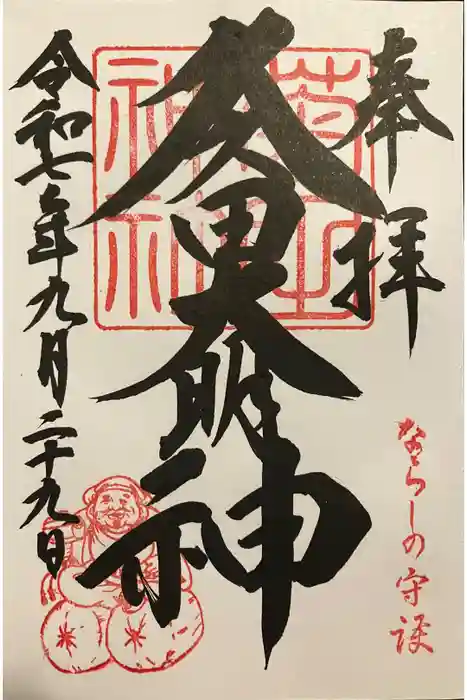 奉拝
久々田大明神
ならしの守護
令和七年九月二十九日